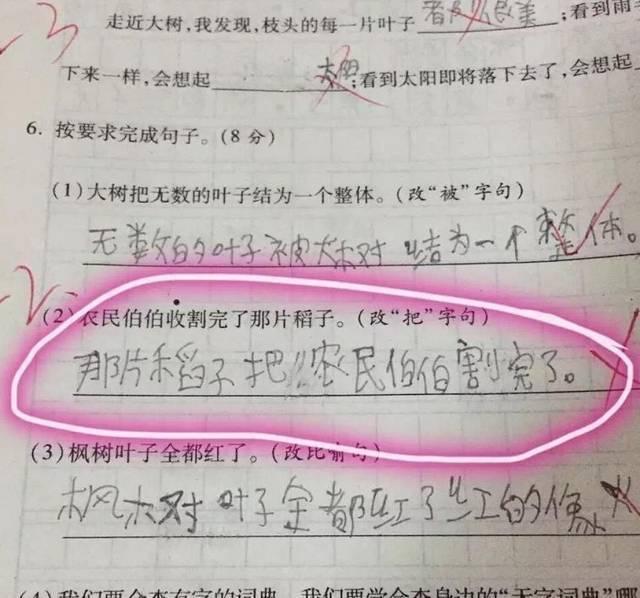 走近大树,我发现,枝头的每一片叶子 ;看到雨
下来一样,会想起 太阳 ;看到太阳即将落下去了,会想起
6. 按要求完成句子。(8 分)
(1)大树把无数的叶子结为一个整体。(改“被”字句)
无数的叶子被大树 结为一个 整体。
(2)农民伯伯收割完了那片稻子。(改“把”字句)
那片稻子把农民伯伯割完了。
(3)枫树叶子全都红了。(改比喻句)
枫树 叶子全都红了红的像火
(4)我们要学会查有字的词典,我们要学会查身边的“无字词典”哪